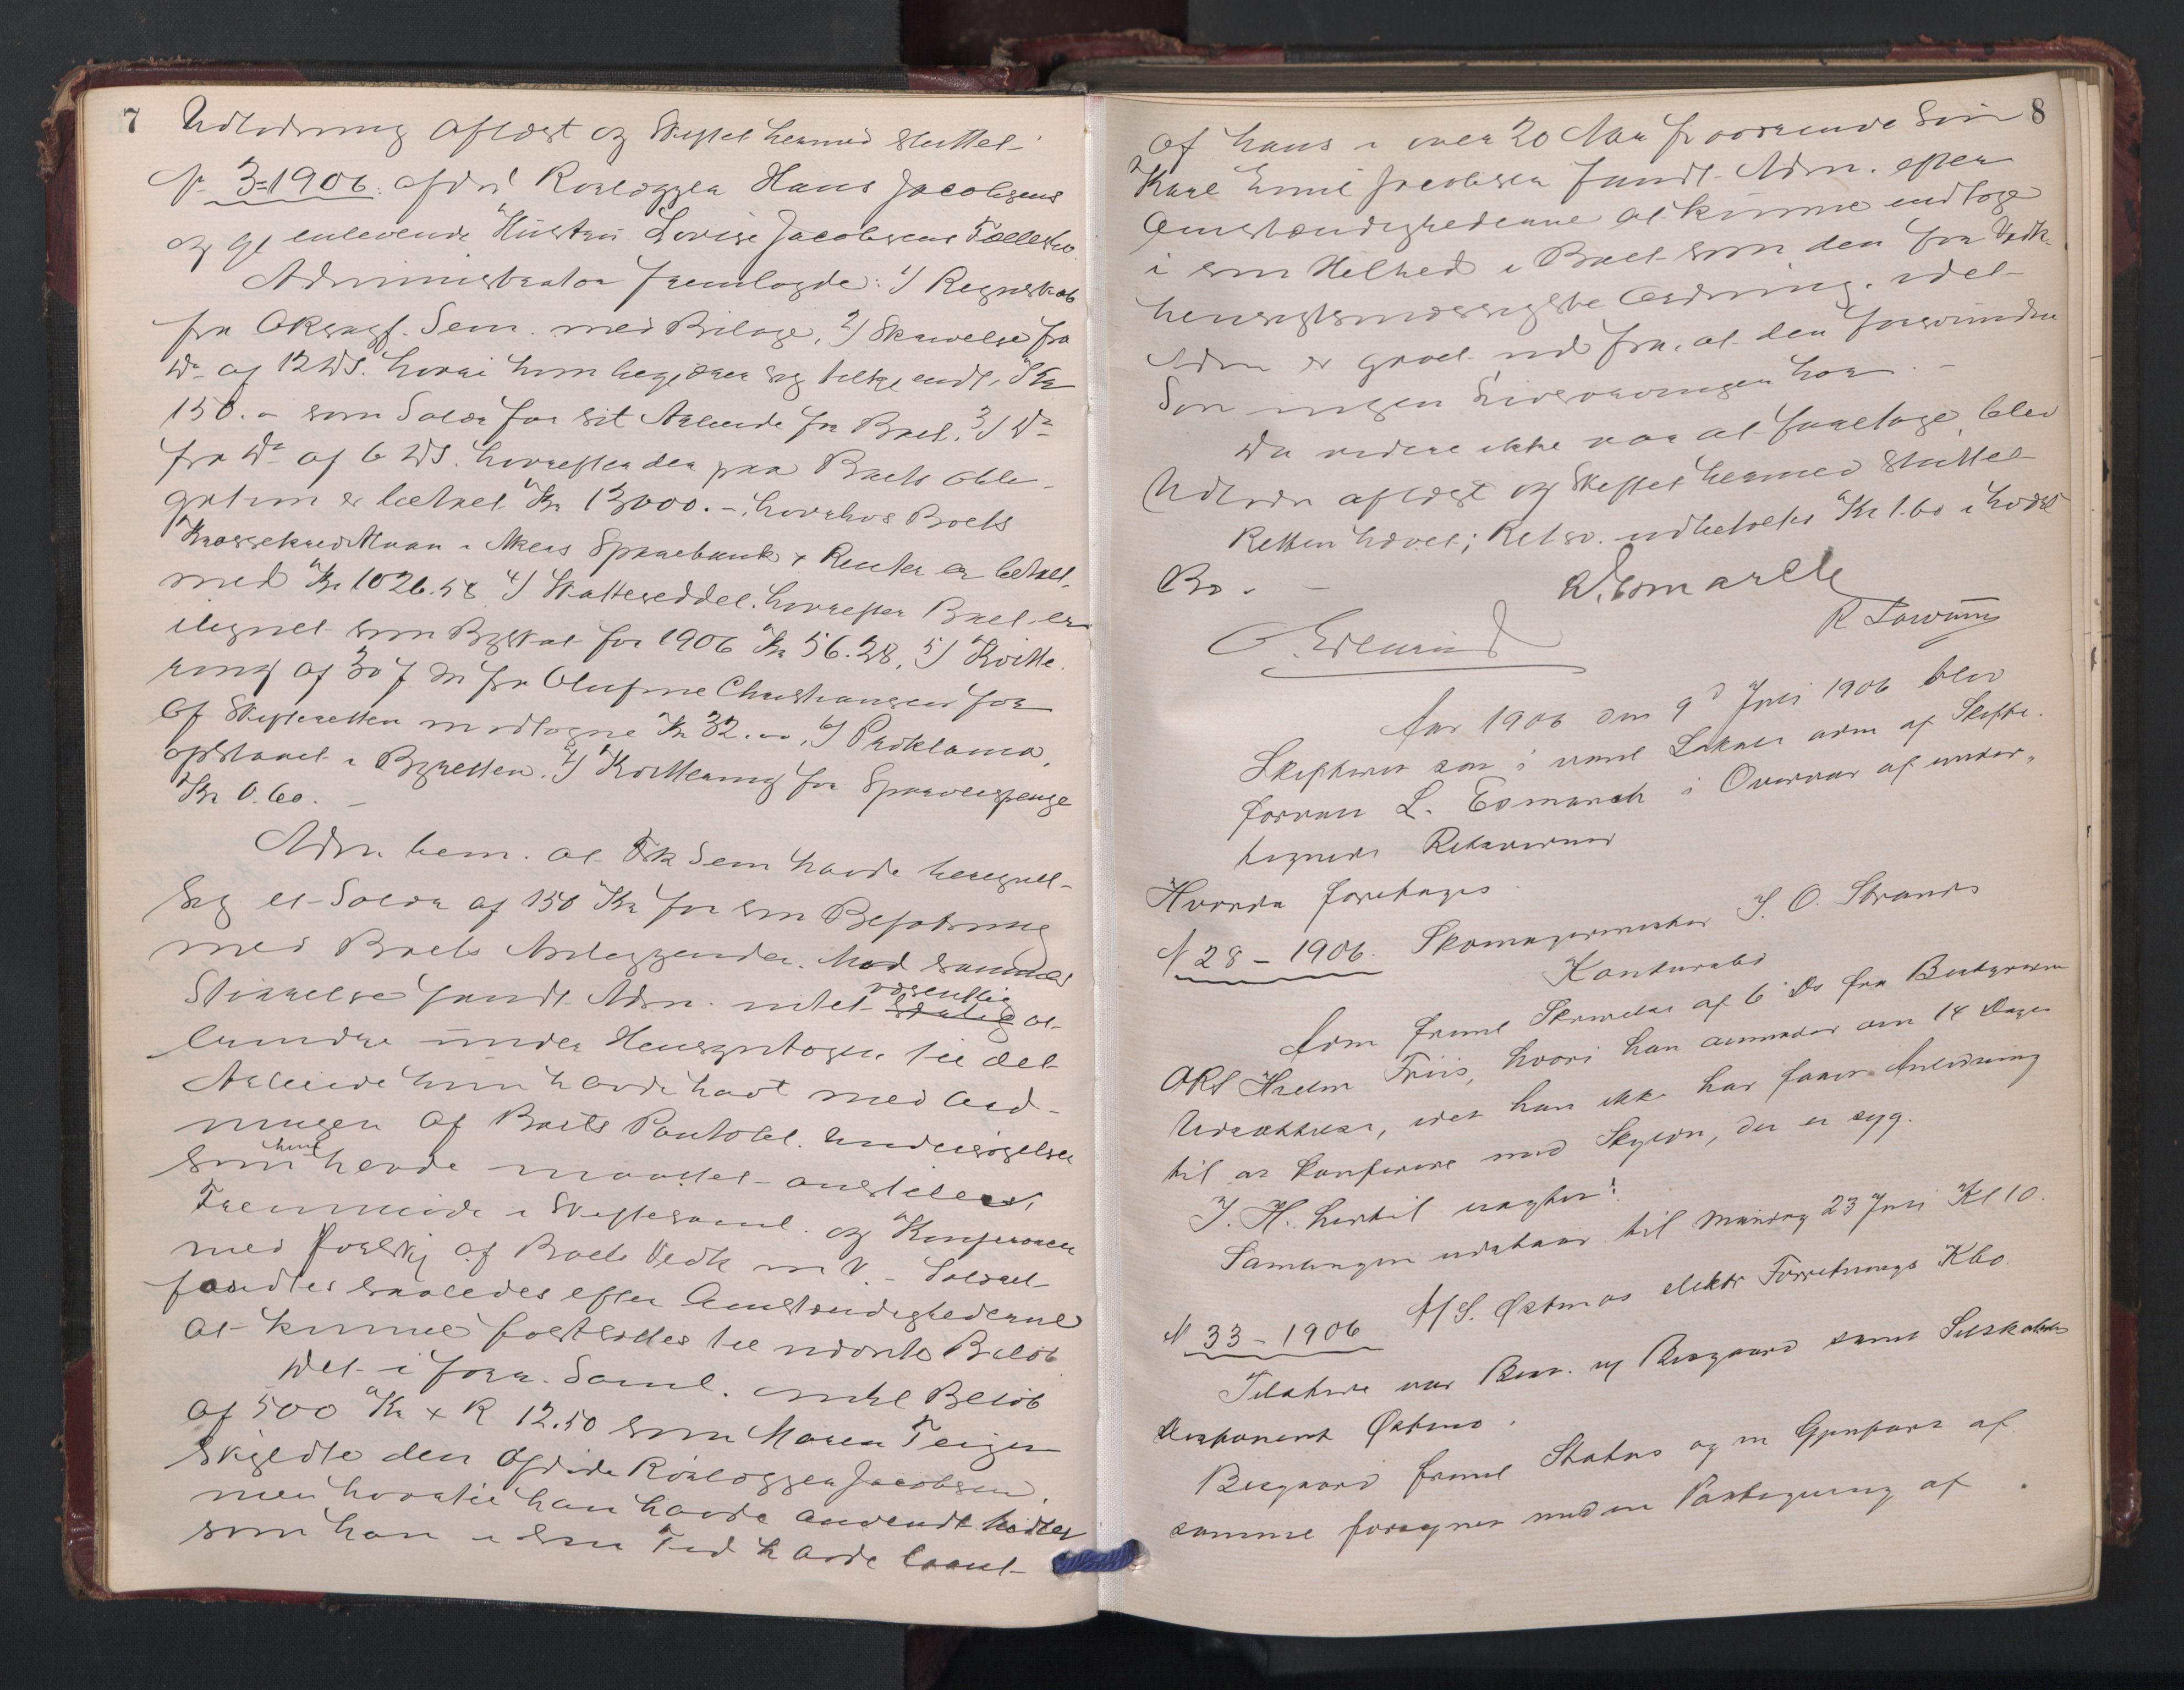 7
Udlodning oplæst og Skiftet hermed sluttet.
N 3=1906. afdøde Rørlægger Hans Jacobsens
og gjenlevende Hustru Lovise Jacobsens Fællesbo.
Administrator fremlagde: 1) Regnskab
fra ORsagf. Sem. med Bilage, 2) Skrivelse fra
Do af 12 ds. hvori han begjærer sig tilkjendt Kr
150.- som Salær for sit Arbeide for Boet. 3) Do
fra Do af 6 ds. hvorefter der paa Boets Obli-
gation er betalt Kr 13000.-, hvorhos Boets
Kassekreditlaan i Akers Sparebank + Renter er betalt
med Kr 1026.58 4) Skatteseddel, hvorefter Boet er
ilignet som Byskat for 1906 Kr 56.28, 5) Kvitte-
ring af 30 f. M. fra Olufine Christiansen for
af Skifteretten modtagne Kr 32.00, 6) Proklama,
opslaaet i Byretten. 7) Kvittering for Sporveispenge
Kr 0.60. -
Adm bem. at Sem havde beregnet
sig et Salær af 150 Kr for sin Befatning
med Boets Anliggender. Mod sammes
Størrelse fandt Adm. intet væsentlig at
bemærke under Hensyntagen til det
Arbeide han havde havt med Ord-
ningen af Boets Panteobl. Undersøgelser
som han havde maattet anstille,
Fremmøde i Skiftesaml. og Konferancer
med Forskj. af Boets Vedk m. V. - Salæret
fandtes saaledes efter Omstændighederne
at kunne fastsættes til nævnte Beløb
Det i forr. Saml. omhl Beløb
af 500 Kr + R 12.50 som Maren Teigen
skyldte den afdøde Rørlægger Jacobsen,
men hvortil han havde anvendt Midler
som han i sin Tid havde laant
8
af hans i over 20 Aar fraværende Søn
Karl Emil Jacobsen fandt Adm. efter
Omstændighederne at kunne indtage
i sin Helhed i Boet som den for Vedk.
hensigtsmæssigste Ordning, idet
Adm er gaaet ud fra, at den forsvundne
Søn ingen Livsarvinger har. -
Da videre ikke var at foretage, blev
Udlodn oplæst og Skiftet hermed sluttet
Retten hævet; Retsv. udbetaltes Kr 1.60 i hvert
Bo. -
L. Esmarch
R Lowum
Aar 1906 den 9d Juli 1906 blev
Skifteret sat i vanl Lokale adm af Skifte-
forvalt L. Esmarch i Overvær af under-
tegnede Retsvidner
Hvorda foretages
N 28 - 1906. Skomagermester J. O. Strands
Konkursbo
Adm freml Skrivelse af 6 ds fra Bestyreren
ORS Friis, hvori han anmoder om 14 Dages
Udsættelse, idet han ikke har faaet Anledning
til at konferere med Skyldn, der er syg.
I. H. hertil vagtes:
Samlingen udstaar til Mandag 23 Juli Kl 10.
N 33 - 1906 A/S. Østmos elektr Forretnings Kbo.
Tilstede var Best. og Bisgaard samt Selskabets
Disponent Østmo.
Bisgaard freml Status og en Gjenpart af
samme forsynet med en Paategning af